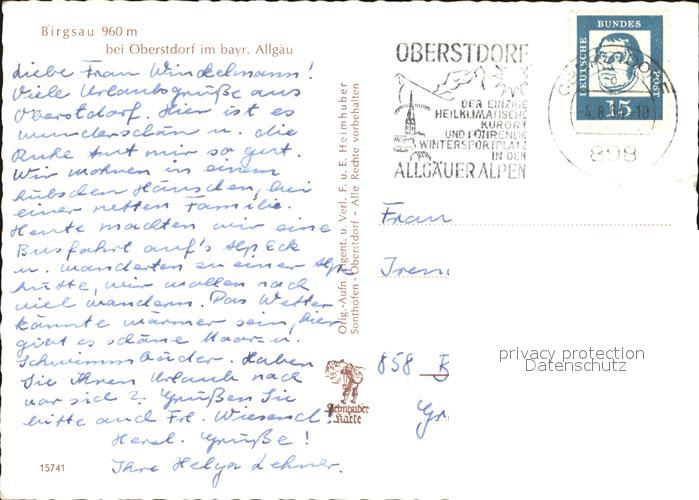 Birgsau 960 m
bei Oberstdorf im bayr. Allgäu
Liebe Frau Windelmann!
Viele Urlaubsgrüße aus
Oberstdorf. Hier ist es
wunderschön u. die
Ruhe tut mir so gut.
Wir wohnen in einem
hübschen Häuschen, bei
einer netten Familie.
Heute machten wir eine
Busfahrt auf's Alp Eck
u. wanderten zu einer Alp
hütte, wir wollen noch
viel wandern. Das Wetter
könnte wärmer sein, hier
gibt es schöne Moor u.
Schwimmbäder. Haben
Sie Ihren Urlaub noch
vor sich? Grüßen Sie
bitte auch Frl. Wiesend!
Herzl. Grüße!
Ihre Helga Lehner.
15741
Orig.-Aufn. Eigent. u. Verl. F. u. E. Heimhuber
Sonthofen-Oberstdorf - Alle Rechte vorbehalten
Heimhuber
Karte
OBERSTDORF
DER EINZIGE
HEILKLIMATISCHE
KURORT
UND FÜHRENDE
WINTERSPORTPLATZ
IN DEN
ALLGÄUER ALPEN
DEUTSCHE BUNDES POST
15
898
Frau
Iren
858 B
Gr
privacy protection
Datenschutz